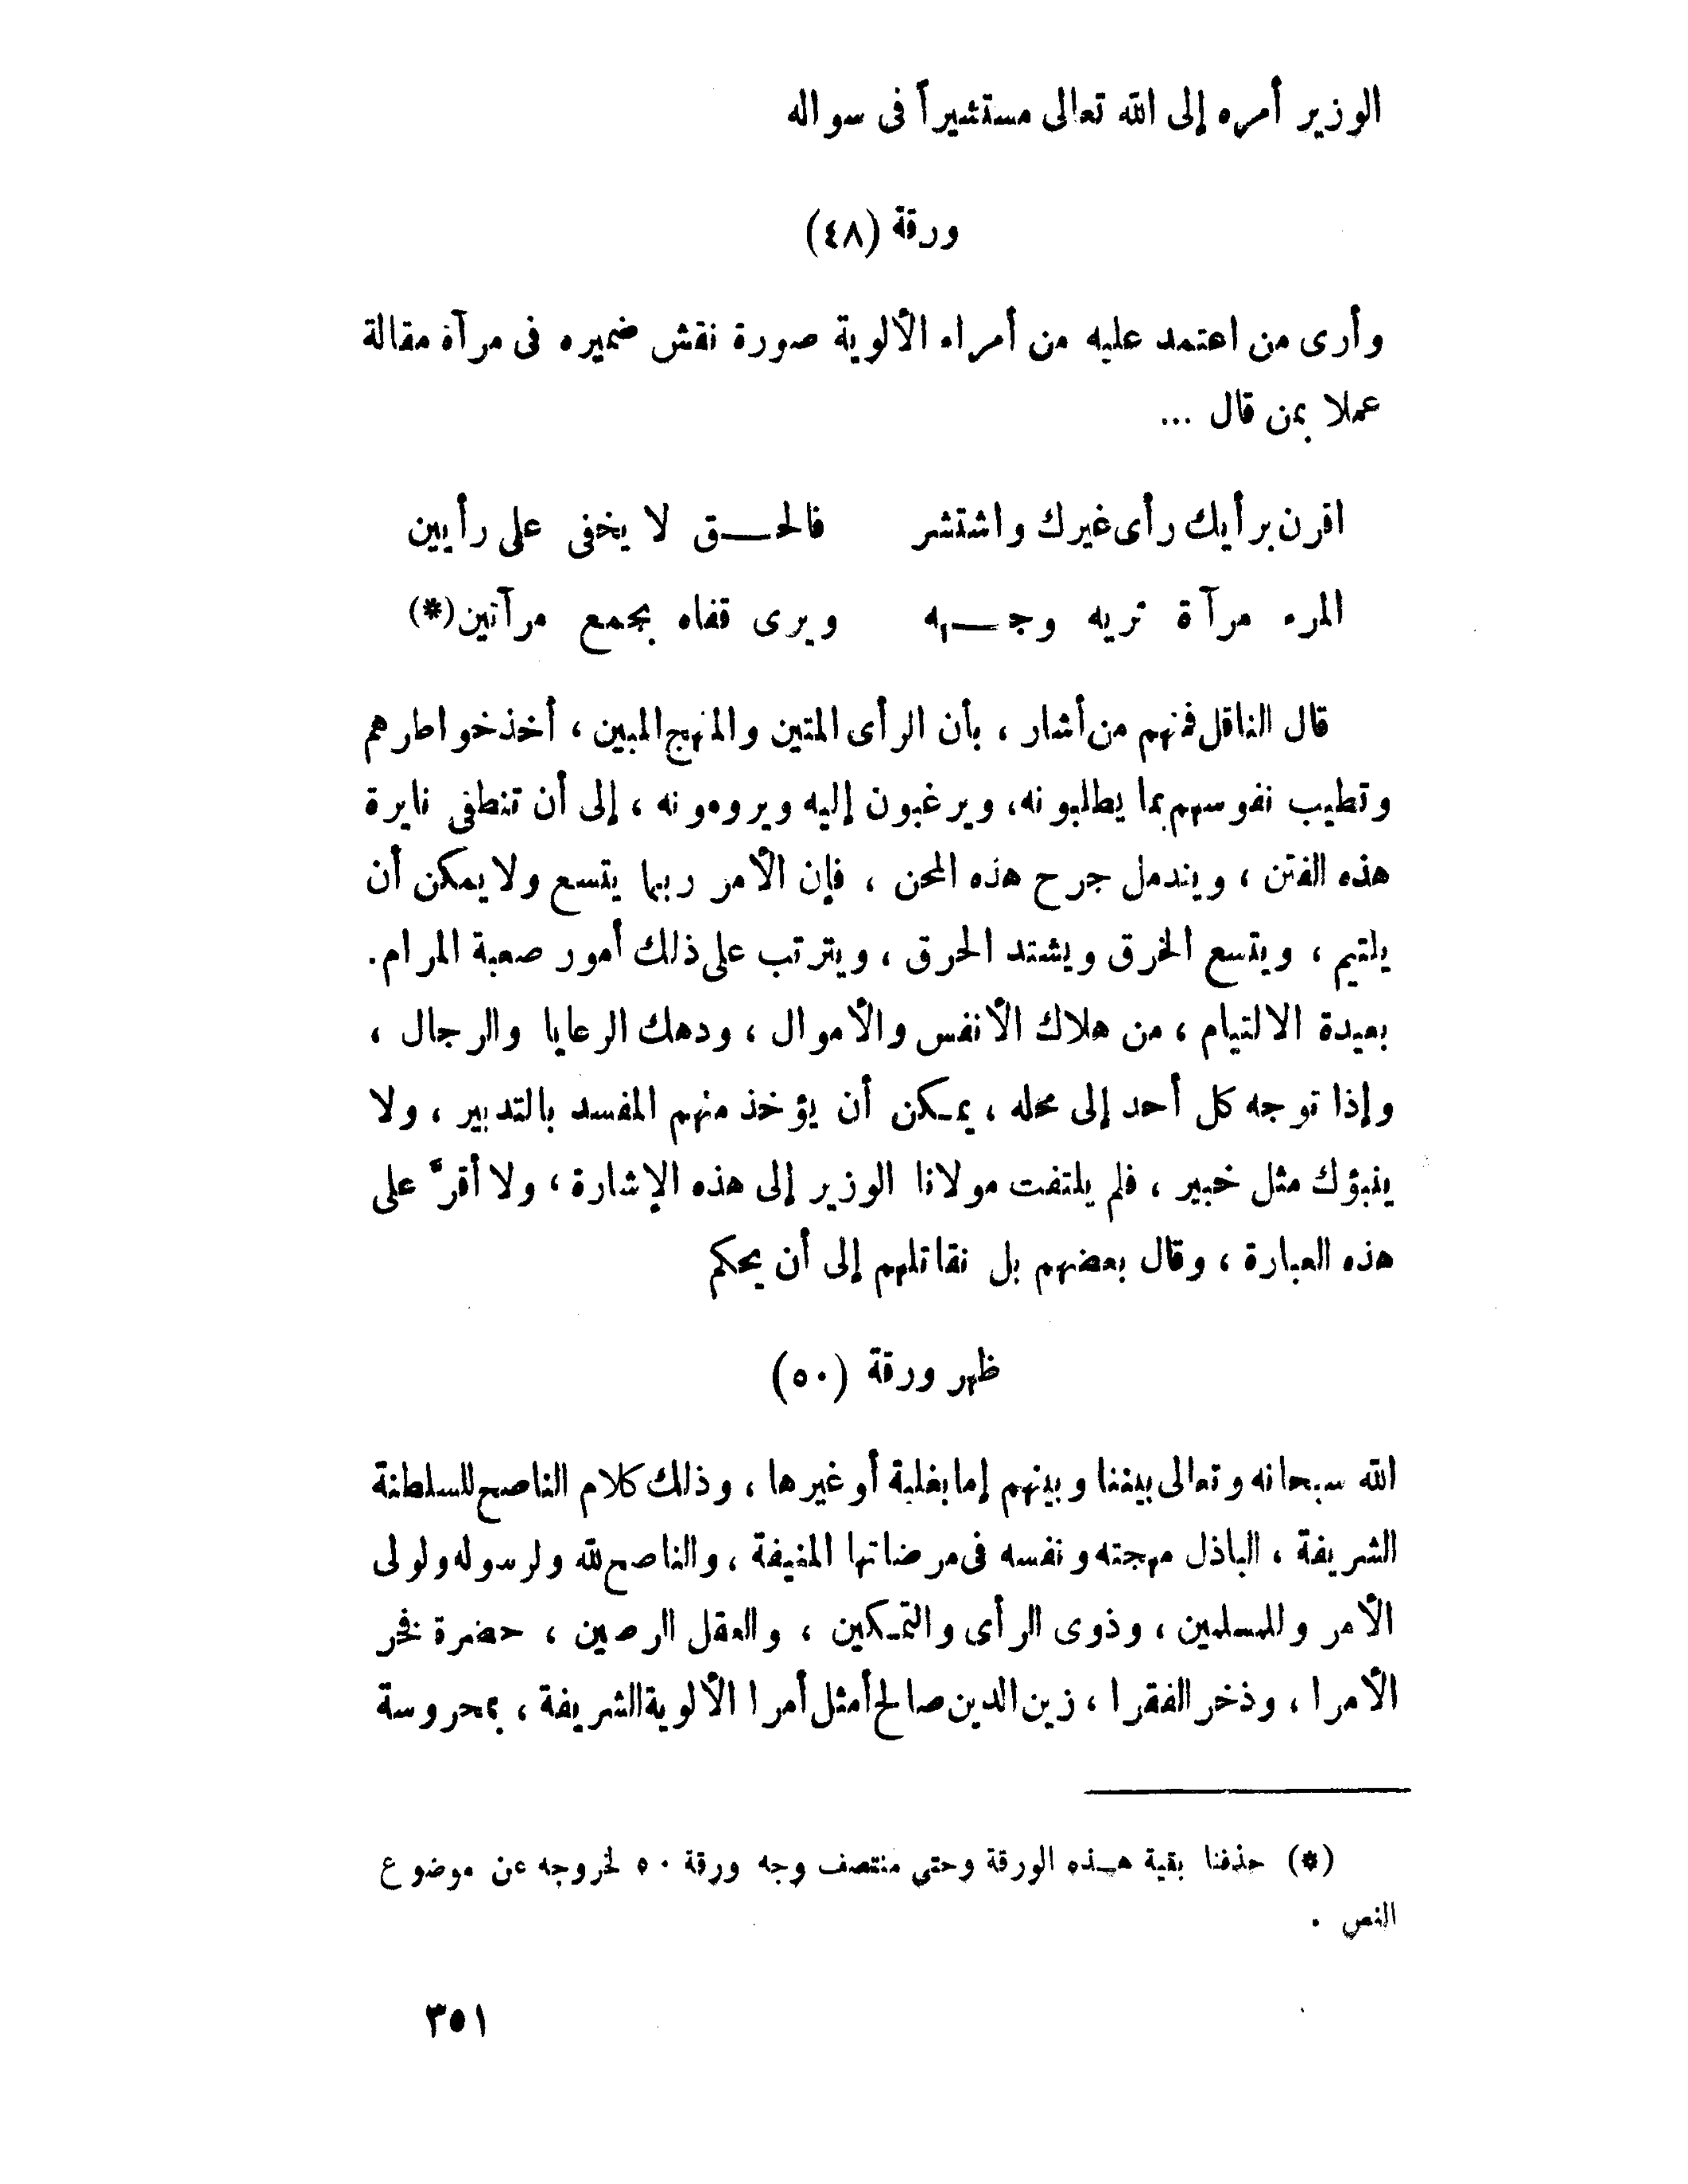 الوزير أمره إلى الله تعالى مستشيراً فى سواله
ورقة (٤٨)
وأرى من اعتمد عليه من أمراء الألوية صورة نقش ضميره فى مرآة مقالة
عملا بمن قال ...
اقرن برأيك رأى غيرك واشتشر فالحـــق لا يخفى على رأيين
المرء مرآة تريه وجـــهه ويرى قفاه بجمع مرآتين(*)
قال الناقل فمنهم من أشار ، بأن الرأى المتين والمنهج المبين ، أخذ خواطرهم
وتطيب نفوسهم بما يطلبونه، ويرغبون إليه ويرومونه ، إلى أن تنطفى نايرة
هذه الفتن ، ويندمل جرح هذه المحن ، فإن الأمر ربما يتسع ولا يمكن أن
يلتيم ، ويتسع الخرق ويشتد الحرق ، ويترتب على ذلك أمور صعبة المرام.
بعيدة الالتيام ، من هلاك الأنفس والأموال ، ودهك الرعايا والرجال ،
وإذا توجه كل أحد إلى محله ، يمـكن أن يؤخذ منهم المفسد بالتدبير ، ولا
ينبؤك مثل خبير ، فلم يلتفت مولانا الوزير إلى هذه الإشارة ، ولا أقرّ على
هذه العبارة ، وقال بعضهم بل نقاتلهم إلى أن يحكم
ظهر ورقة (٥٠)
الله سبحانه وتعالى بيننا وبينهم إما بغلبة أو غيرها ، وذلك كلام الناصح للسلطنة
الشريفة ، الباذل مهجته ونفسه فى مرضاتها المنيفة ، والناصح لله ولرسوله ولولى
الأمر وللمسلمين ، وذوى الرأى والتمـكين ، والعقل الرصين ، حضرة فخر
الأمرا ، وذخر الفقرا ، زين الدين صالح أمثل أمرا الألوية الشريفة ، بمحروسة
(*) حذفنا بقية هـذه الورقة وحتى منتصف وجه ورقة ٥٠ لخروجه عن موضوع
النص .
٣٥١